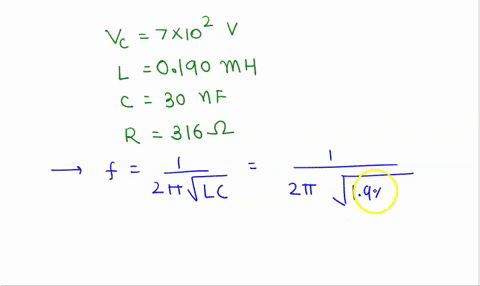 V_C = 7×10² V
L = 0.190 mH
C = 30 nF
R = 316 Ω
→ f = 1 / 2π√LC = 1 / 2π √1.9